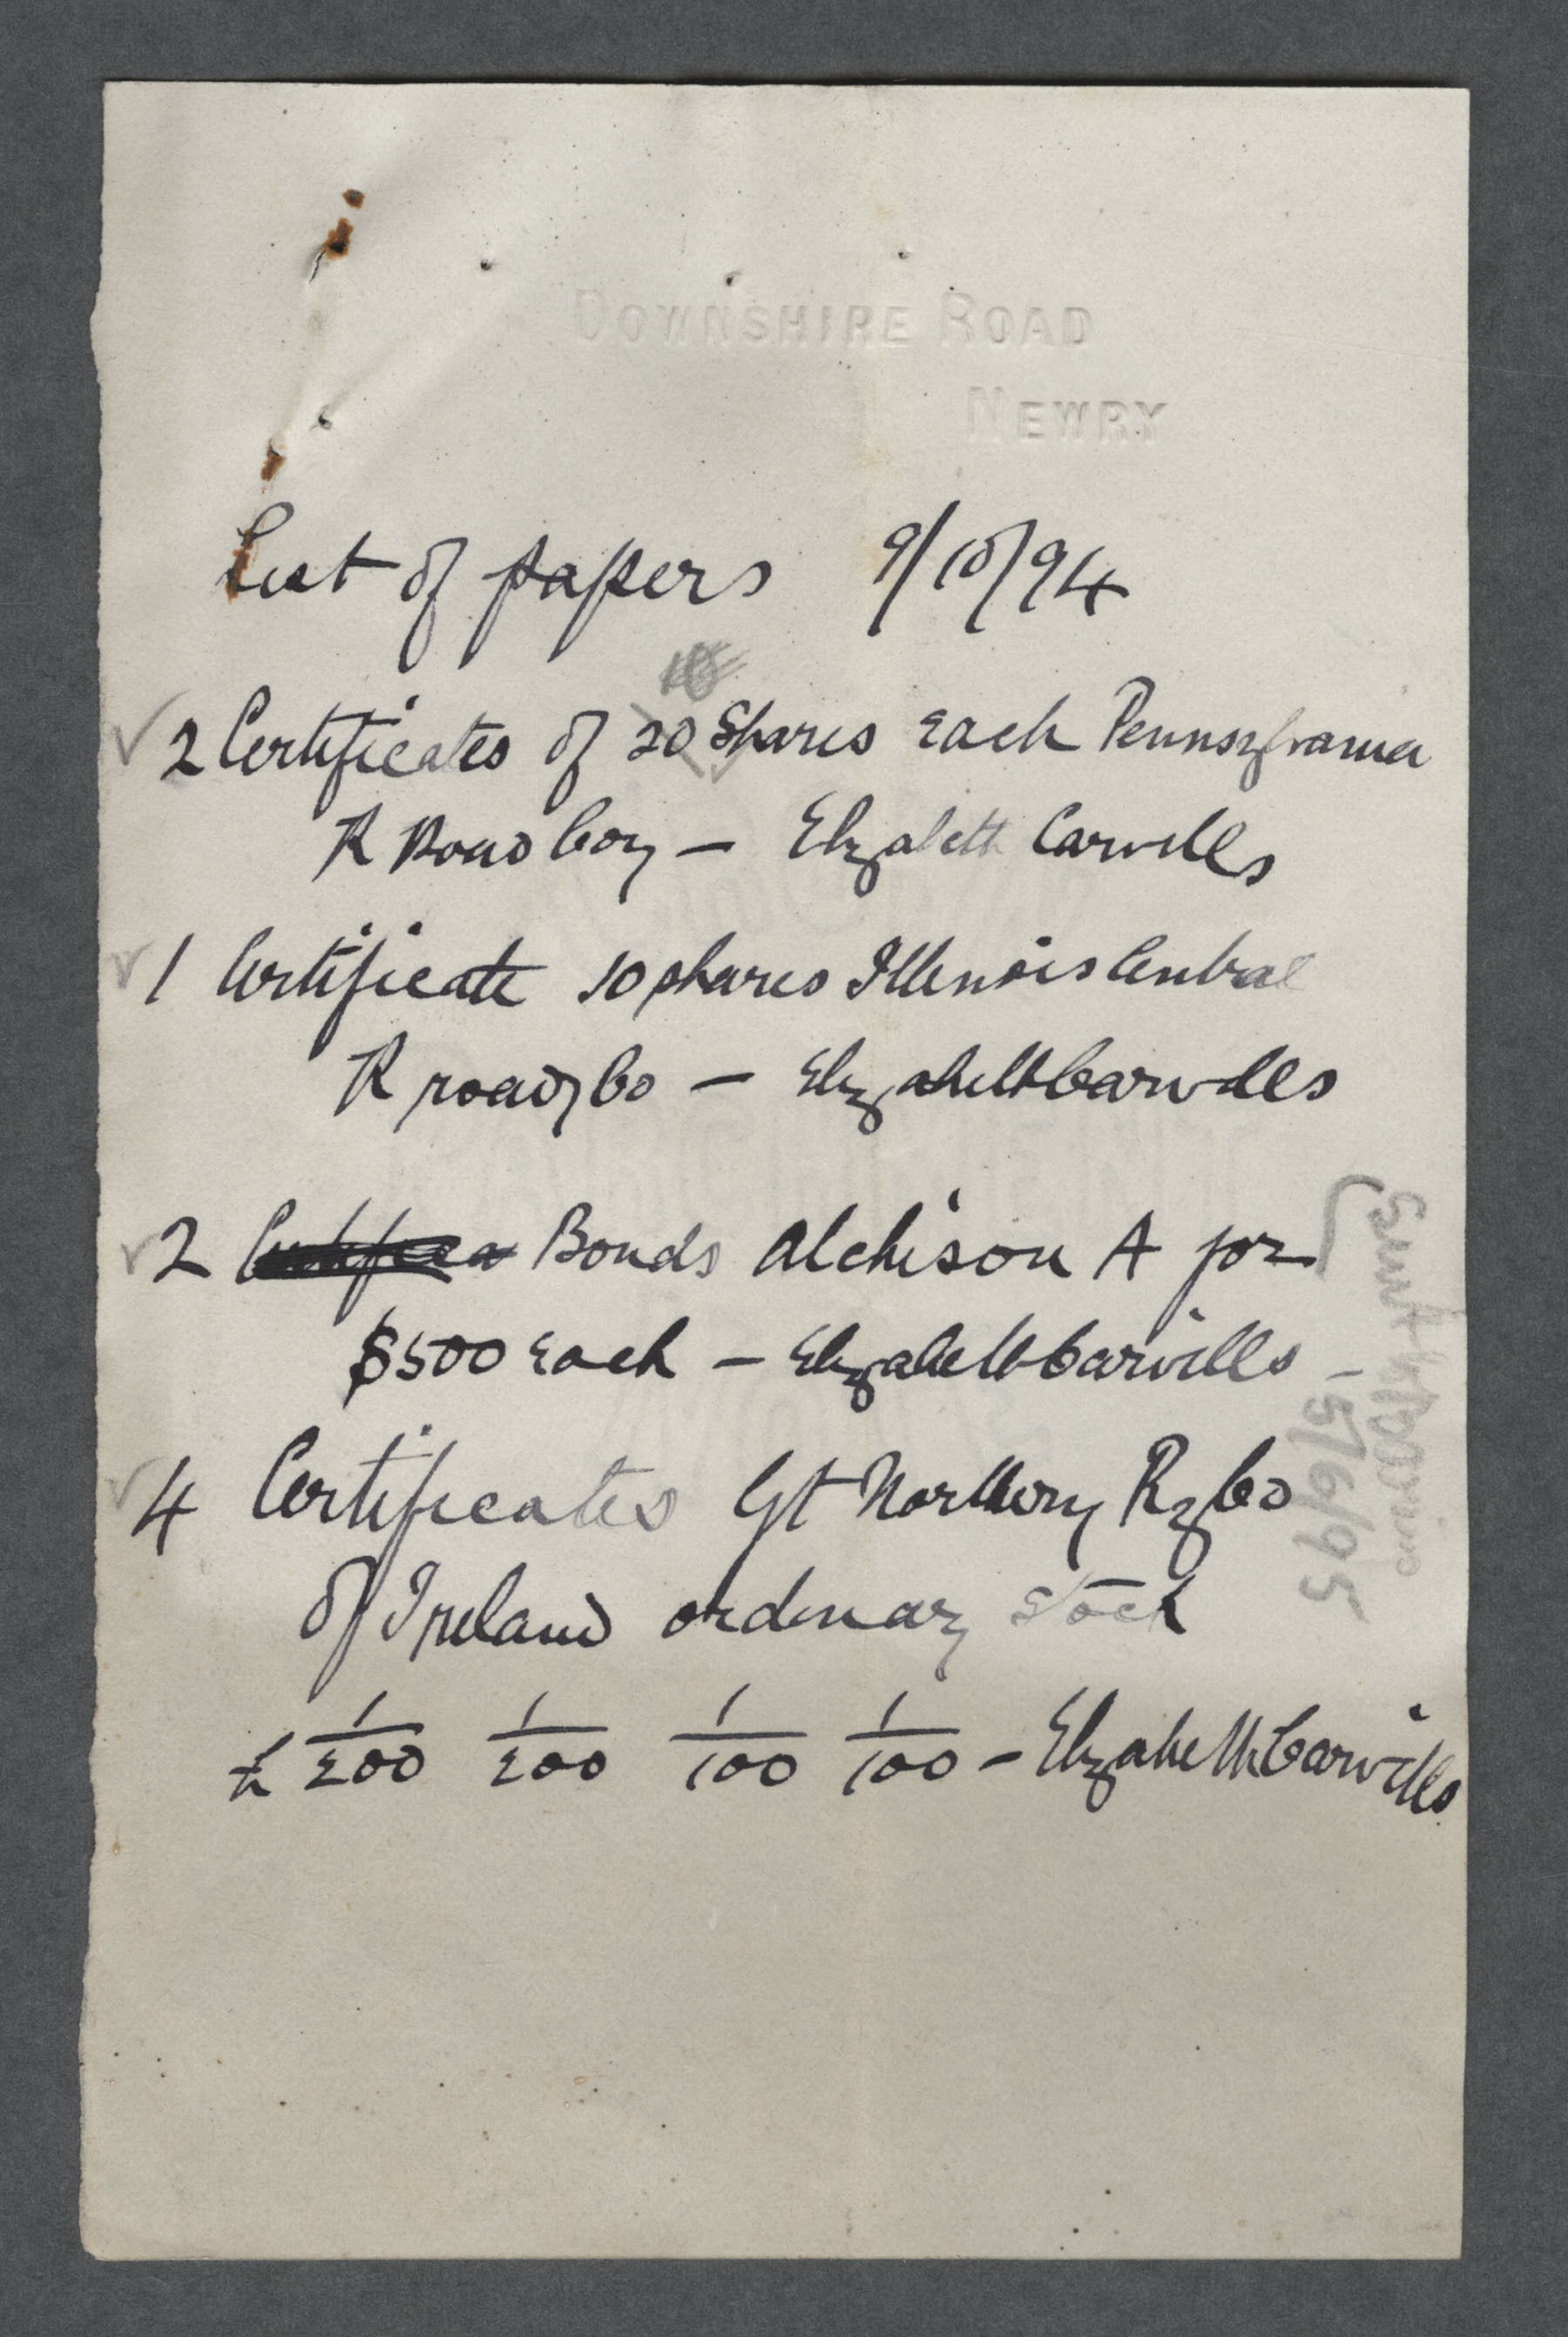 DOWNSHIRE ROAD
NEWRY
List of papers 9/10/94
2 Certificates of 20 Shares each Pennsylvania
R Road Coy — Elizabeth Carvills
1 Certificate 10 shares Illinois Central
R road Co — Elizabeth Carvills
2 Bonds Atchison A for
$500 each — Elizabeth Carvills —
4 Certificates Gt Northern Ry Co
of Ireland ordinary stock
£ 1/200 1/200 1/100 1/100 — Elizabeth Carvills
Sent to
5/6/95